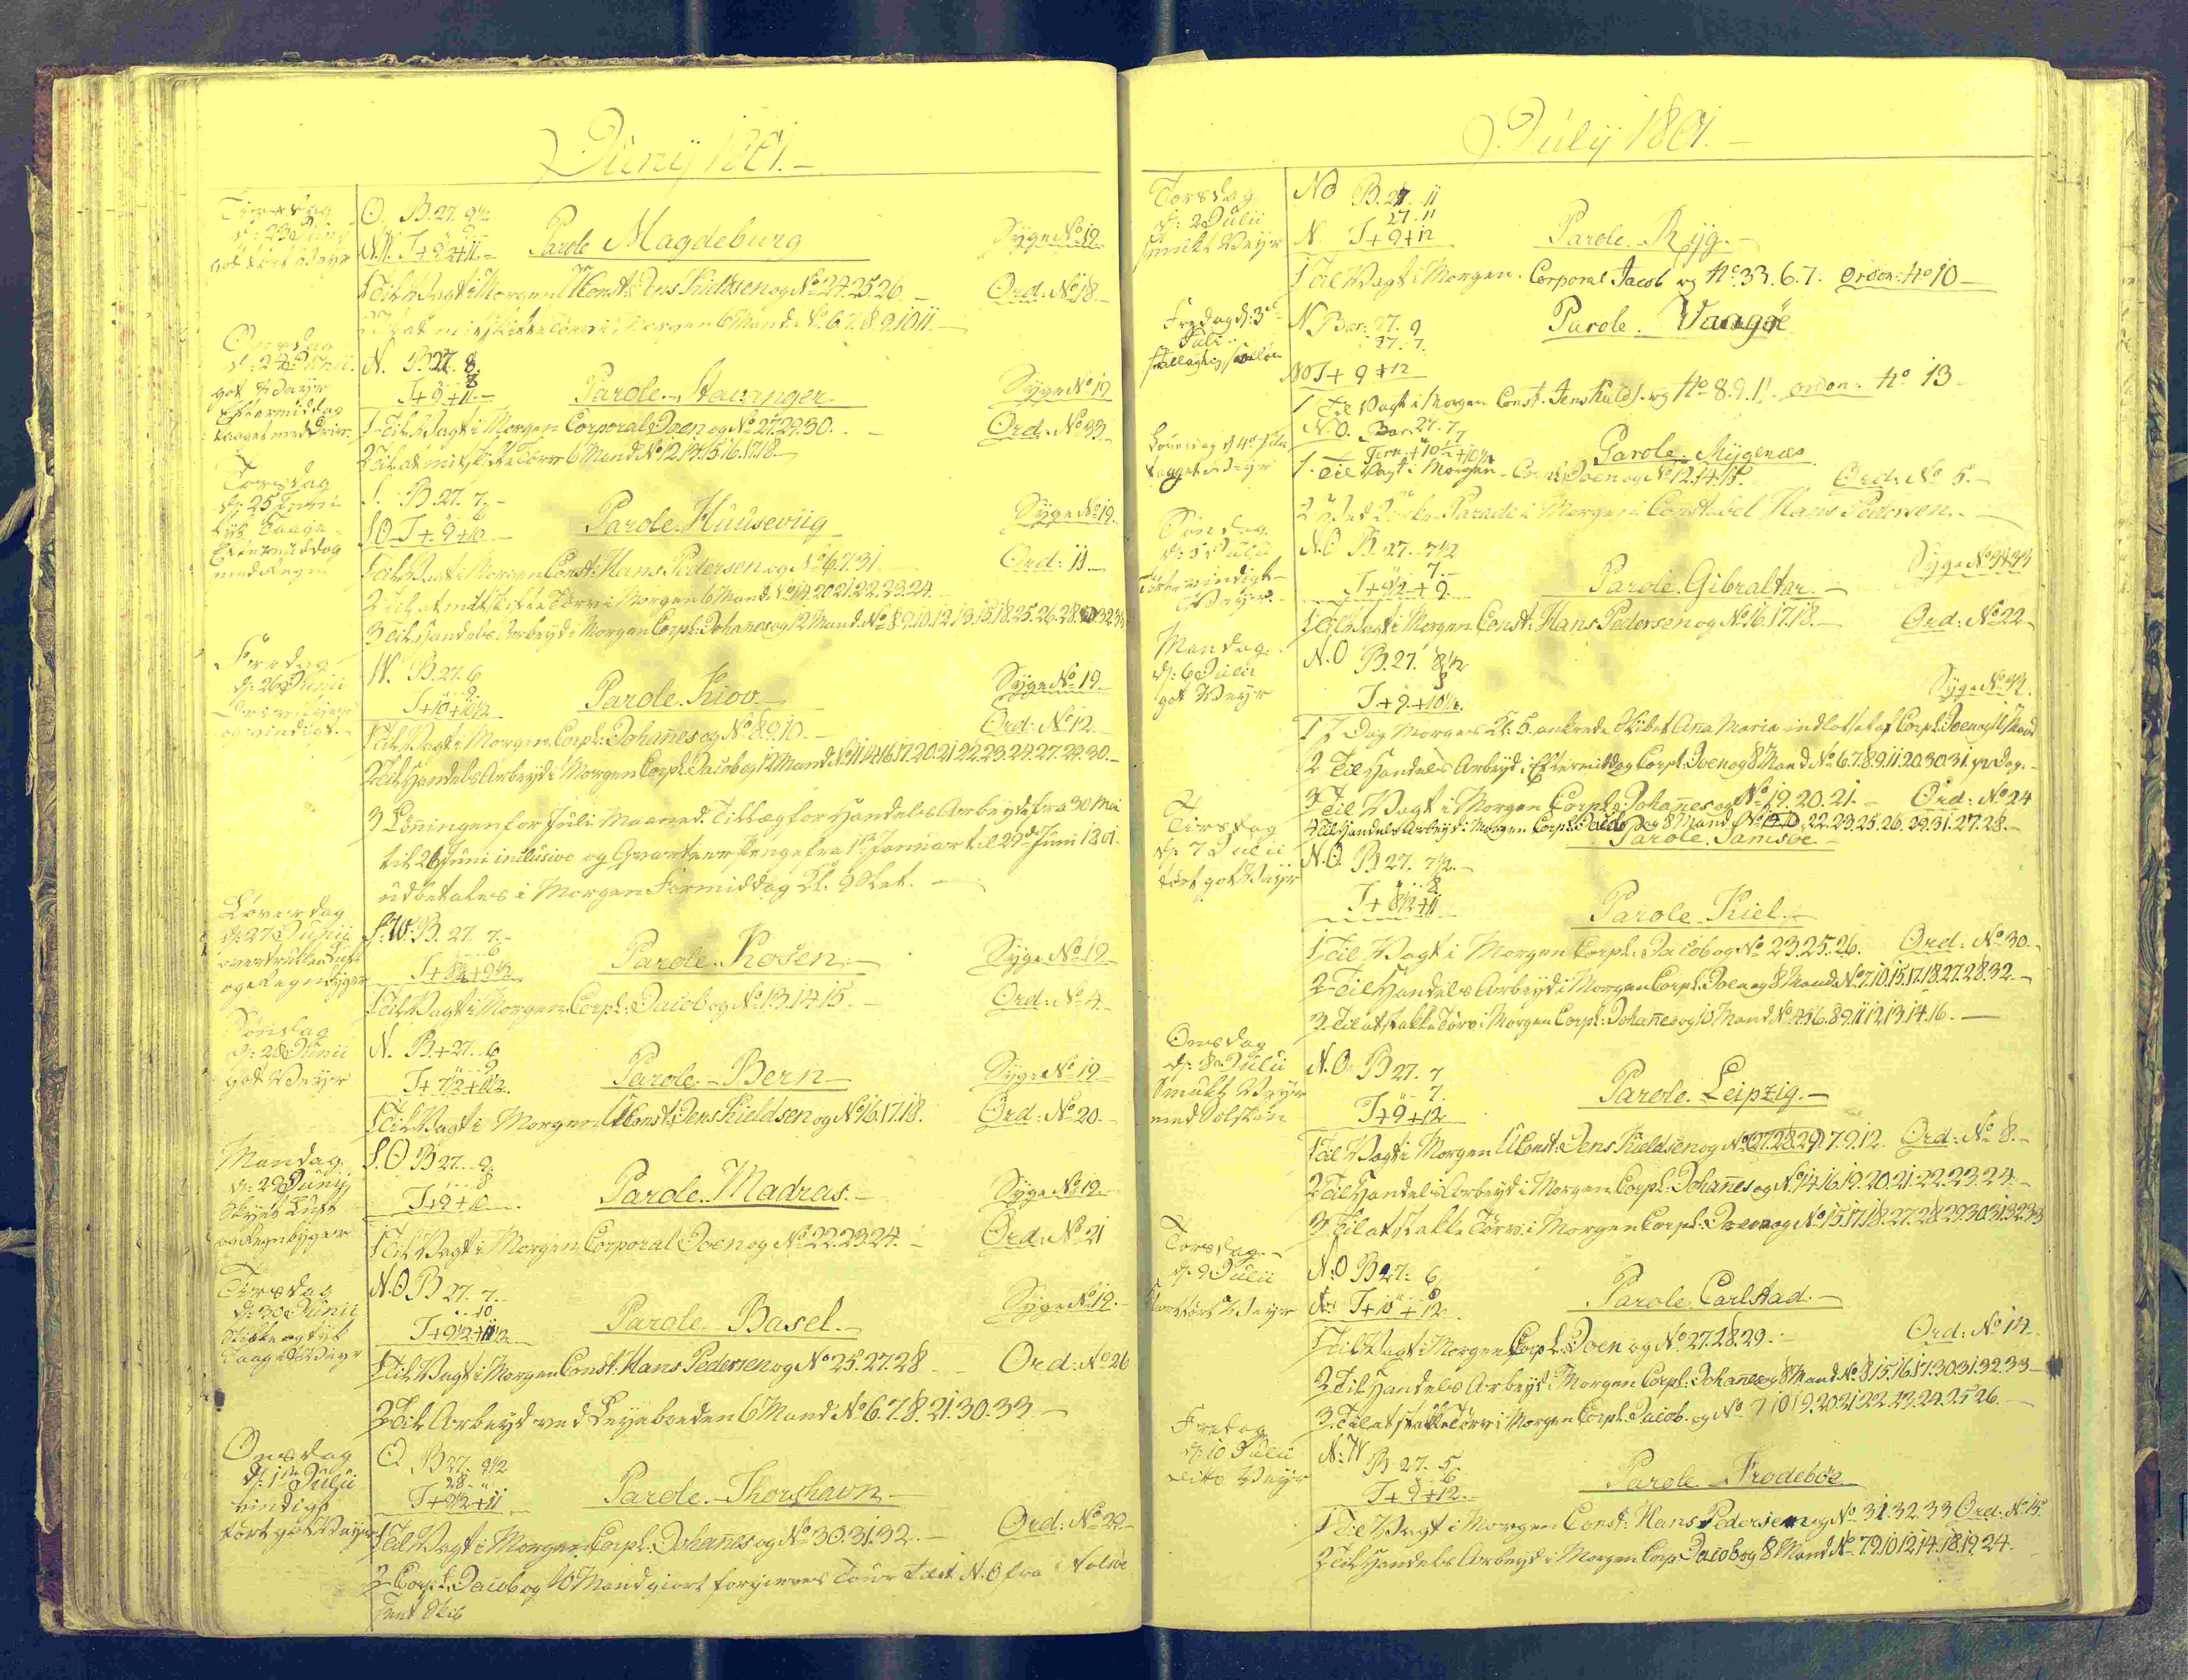 Junij 1801.
Tirsdag
d: 23 Junij
got tört Veyr
O. B. 27. 9½
9
N.W. T+9½+11
Parole Magdeburg
Syge No 19
1 Til Vagt i Morgen UConst: Jens Kieldsen og No 24.25.26.
Ord: No 18.
6 Mand No 6.7.8.9.10.11.
Onsdag
d: 24 Junii.
got Veyr
Eftermiddag
N. B. 27. 8.
8
T+9+11
Parole. Stavanger
Syge No 19
1 Til Vagt i Morgen Corporal Joen og No 27.29.30.
Ord. No 33
2 Til at Törv 6 Mand No 12.14.15.16.17.18
Torsdag
d: 25 Junii
tyk Taage
Eftermiddag
med Regn
S. B. 27. 7.
6
SO T+9+10
Parole. Huusevig
Syge No 19.
1 Til Vagt i Morgen Const: Hans Pedersen og No 6.7.31.
Ord: 11
2 Til at Törv i Morgen 6 Mand No 14.20.21.22.23.24.
3 Til Handels Arbeyd i Morgen Corpl: Johanes og 12 Mand No 8.9.10.12.13.15.18.25.26.28.
Fredag
d: 26 Junii
og vindigt
W. B. 27. 6
9
T+10+10½
Parole. Kiov
Syge No 19.
1 Til Vagt i Morgen Corpl: Johañes og No 8.9.10.
Ord: No 12
2 Til Handels Arbeyd i Morgen Corpl: Jacob og 12 Mand No 11.14.16.17.20.21.22.23.24.27.29.30.
3 Lönningen for Juli Maaned. Tillæg for Handels Arbeyde fra 30 Mai
til 26 Juni inclusive og Qvarteer Penge fra 1ste Januar til 29de Juni 1801.
udbetales i Morgen Formiddag Kl. 9 Slet.
Löverdag
d: 27 Junii
og Regnbyger
S.W. B. 27. 7.
6
T+8½+9½
Parole. Kosen
Syge No 19
1 Til Vagt i Morgen Corpl: Jacob og No 13.14.15.
Ord: No 4
Söndag
d: 28 Junii
got Veyr
N. B. 27. 6
9
T+7½+11½
Parole. Bern
Syge No 19
1 Til Vagt i Morgen UConst: Jens Kieldsen og No 16.17.18.
Ord: No 20.
Mandag
d: 29 Junij
Skyet Luft
og Regnbyger
S.O B 27. 9.
8
T+9+10
Parole. Madras.
Syge No 19.
1 Til Vagt i Morgen Corporal Joen og No 22.23.24.
Ord: No 21
Tirsdag
d: 30 Junii
Stille og tyk
Taaget Veyr
N.O B 27. 7.
10
T+9½+11½
Parole. Basel.
Syge No 19.
1 Til Vagt i Morgen Const: Hans Pedersen og No 25.27.28
Ord: No 26
2 Til Arbeyd ved Leyeboeden 6 Mand No 6.7.8.21.30.33
Onsdag
d: 1ste Julii
vindigt
tört got Veyr
O B 27. 9½
28
T+9½+11
Parole. Thorshavn
1 Til Vagt i Morgen Corpl: Johañes og No 30.31.32.
Ord: No 29
2 Corpl: Jacob og 10 Mand giort forgieves Tour til et N.O fra Nolsöe
Skib
Julij 1801.
Torsdag
d: 2 Julii
smukt Veyr
NO B. 27. 11
27. 11
N. T+9+12
Parole. Ryg.
1 Til Vagt i Morgen. Corporal Jacob og No 33.6.7. Ordon: No 10
Fredag d: 3de
Juli
N Bar: 27. 9
27. 7.
NO T+9+12
Parole. Vaagöe
1 Til Vagt i Morgen Const. Jens Kields. og No 8.9.11. ordon. No 13
Löverdag d 4de Julii
taaget Veyr
N.O. Bar. 27. 7
Term: +10+10½
Parole. Mygenæs
1. Til Vagt i Morgen Corpl: Joen og No 12.14.15.
Ord: No 5.
2 Ved Kirke Parade i Morgen Constabel Hans Pedersen.
Söndag
d: 5 Julii
tört vindigt
Veyr.
N.O B. 27. 7½
7.
T+9½+9.
Parole. Gibraltar.
1 Til Vagt i Morgen Const: Hans Pedersen og No 16.17.18.
Ord: No 22
Mandag.
d: 6 Julii
got Veyr
N.O B. 27. 8½
8
T+9+10½.
1 J Dag Morges Kl: 5. ankrede Skibet Ana Maria indlodset af Corpl: Joen og Mand
2 Til Handels Arbeyd i Eftermiddag Corpl: Joen og 8 Mand No 6.7.8.9.11.20.30.31.
3 Til Vagt i Morgen Corpl: Johañes og No 19.20.21.
Ord: No 24
4 Til Handels Arbeyd i Morgen Corpl: Jacob og 8 Mand No 22.23.25.26.29.31.27.28.
Parole. Samsöe
Tirsdag
d: 7 Julii
tört got Veyr
N.O. B 27. 7½.
8
T+8½+11
Parole. Kiel.
1 Til Vagt i Morgen Corpl: Jacob og No 23.25.26.
Ord: No 30.
2 Til Handels Arbeyd i Morgen Corpl. Joen og 8 Mand No 7.10.15.17.18.27.28.32.
3. Til at stakke Törv i Morgen Corpl: Johañes og 10 Mand No 6.8.9.11.12.13.14.16.
Onsdag
d: 8 Julii
Smukt Veyr
med Solskin
N.O B 27. 7
7.
T+9+12
Parole. Leipzig.
1 Til Vagt i Morgen UConst: Jens Kieldsen og No 27.28.29. 7.9.12. Ord: No 8.
2 Til Handels Arbeyd i Morgen Corpl: Johañes og No 14.16.19.20.21.22.23.24.
3 Til at Stakke Törv i Morgen Corpl: Joen og No 15.17.18.27.28.29.30.31.32.33
Torsdag.
d: 9 Julii
N.O B 27. 6
T+10+12
Parole. Carlstad.
1 Til Vagt i Morgen Corpl: Joen og No 27.28.29.
Ord: No 14
2 Til Handels Arbeyd i Morgen Corpl: Johañes og 8 Mand No 8.15.16.17.30.31.32.33
3. Til at stakke Törv i Morgen Corpl: Jacob. og No 7.10.19.20.21.22.23.24.25.26.
Fredag
d: 10 Julii
dito Veyr
N:W B 27. 5.
6
T+9+12.
Parole. Frodeböe
1 Til Vagt i Morgen Const: Hans Pedersen og No 31.32.33 Ord: No 15.
2 Til Handels Arbeyd i Morgen Corp: Jacob og 8 Mand No 7.9.10.12.14.18.19.24.